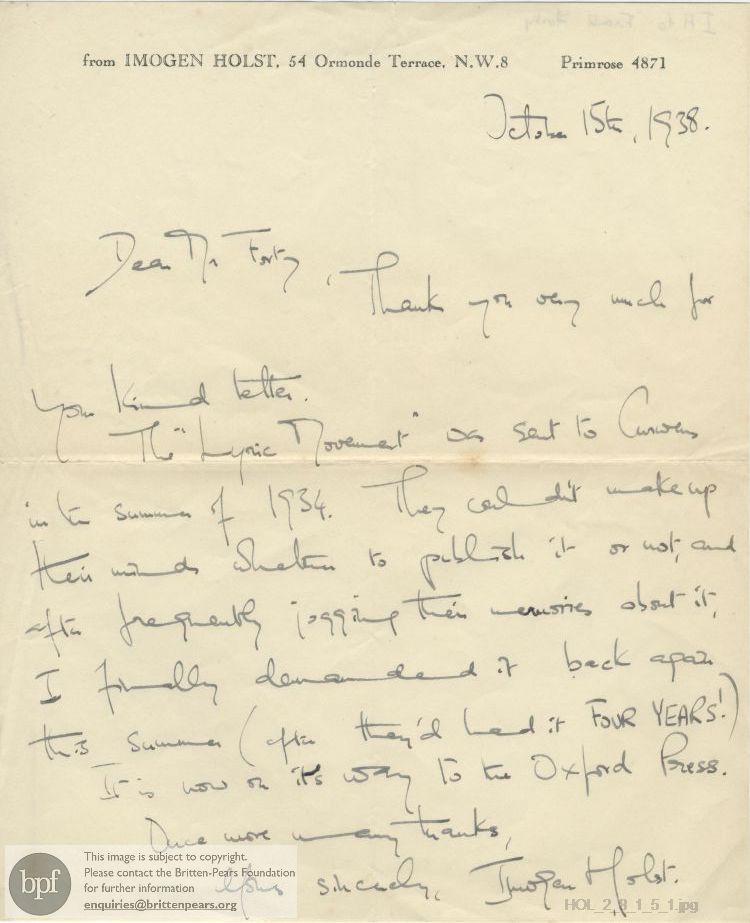 from IMOGEN HOLST, 54 Ormonde Terrace, N.W.8 Primrose 4871
October 15th, 1938.
Dear Mr Forty,
Thank you very much for
your kind letter.
The "Lyric Movement" was sent to Curwens
in the summer of 1934. They couldn't make up
their minds whether to publish it or not, and
after frequently jogging their memories about it,
I finally demanded it back again
this summer (after they'd had it FOUR YEARS!)
It is now on its way to the Oxford Press.
Once more many thanks,
Yours sincerely, Imogen Holst.
bpf
This image is subject to copyright.
Please contact the Britten-Pears Foundation
for further information
enquiries@brittenpears.org
HOL_2_8_1_5_1.jpg